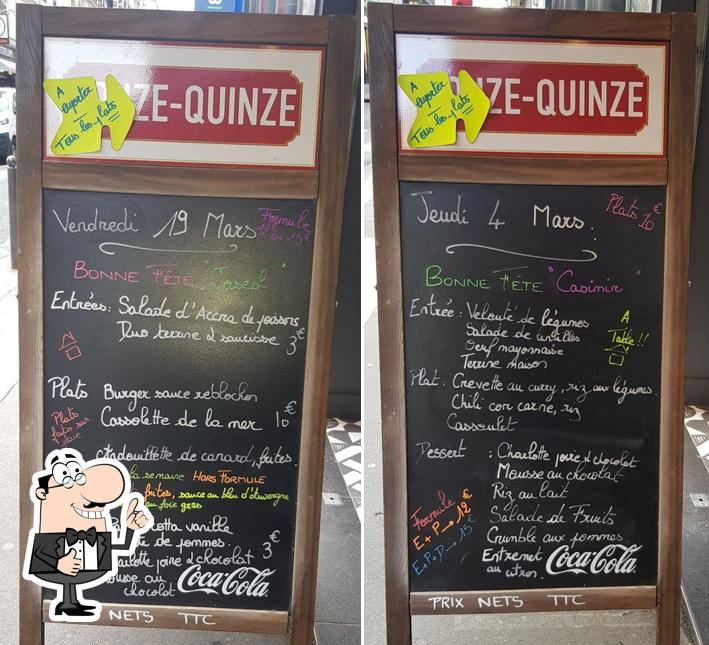 A
emporter
Tous les plats
ZE-QUINZE
Vendredi 19 Mars
Formule
12 ou 15€
BONNE FÊTE "Joseph"
Entrées: Salade d'Accra de poissons
Duo terrine & saucisse 3€
Plats Burger sauce reblochon
Cassolette de la mer 10€
Plats
faits sur
place
Andouillette de canard, frites.
la semaine HORS FORMULE
frites, sauce au bleu d'Auvergne
au foie gras
cotta vanille
de pommes
Charlotte poire & chocolat 3€
Mousse au
chocolat
Coca-Cola
NETS TTC
A
emporter
Tous les plats
ZE-QUINZE
Jeudi 4 Mars.
Plats 10€
BONNE FÊTE "Casimir"
Entrée: Velouté de légumes
Salade de lentilles
Oeuf mayonnaise
Terrine maison
A
Table!!
Plat: Crevette au curry, riz aux légumes.
Chili con carne, riz
Cassoulet
Dessert : Charlotte poire & chocolat
Mousse au chocolat
Riz au lait
Salade de Fruits
Crumble aux pommes
Entremet
au citron.
Formule
E+P→12€
E+P+D→15€
Coca-Cola
PRIX NETS TTC